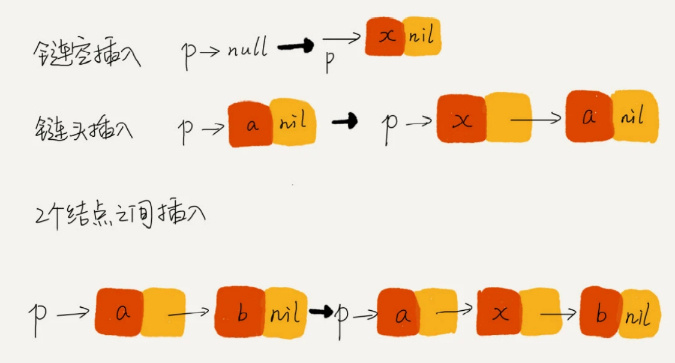 链空插入 p→null → p→ x nil
链头插入 p→ a nil → p→ x → a nil
2个结点之间插入
p→ a → b nil → p→ a → x → b nil